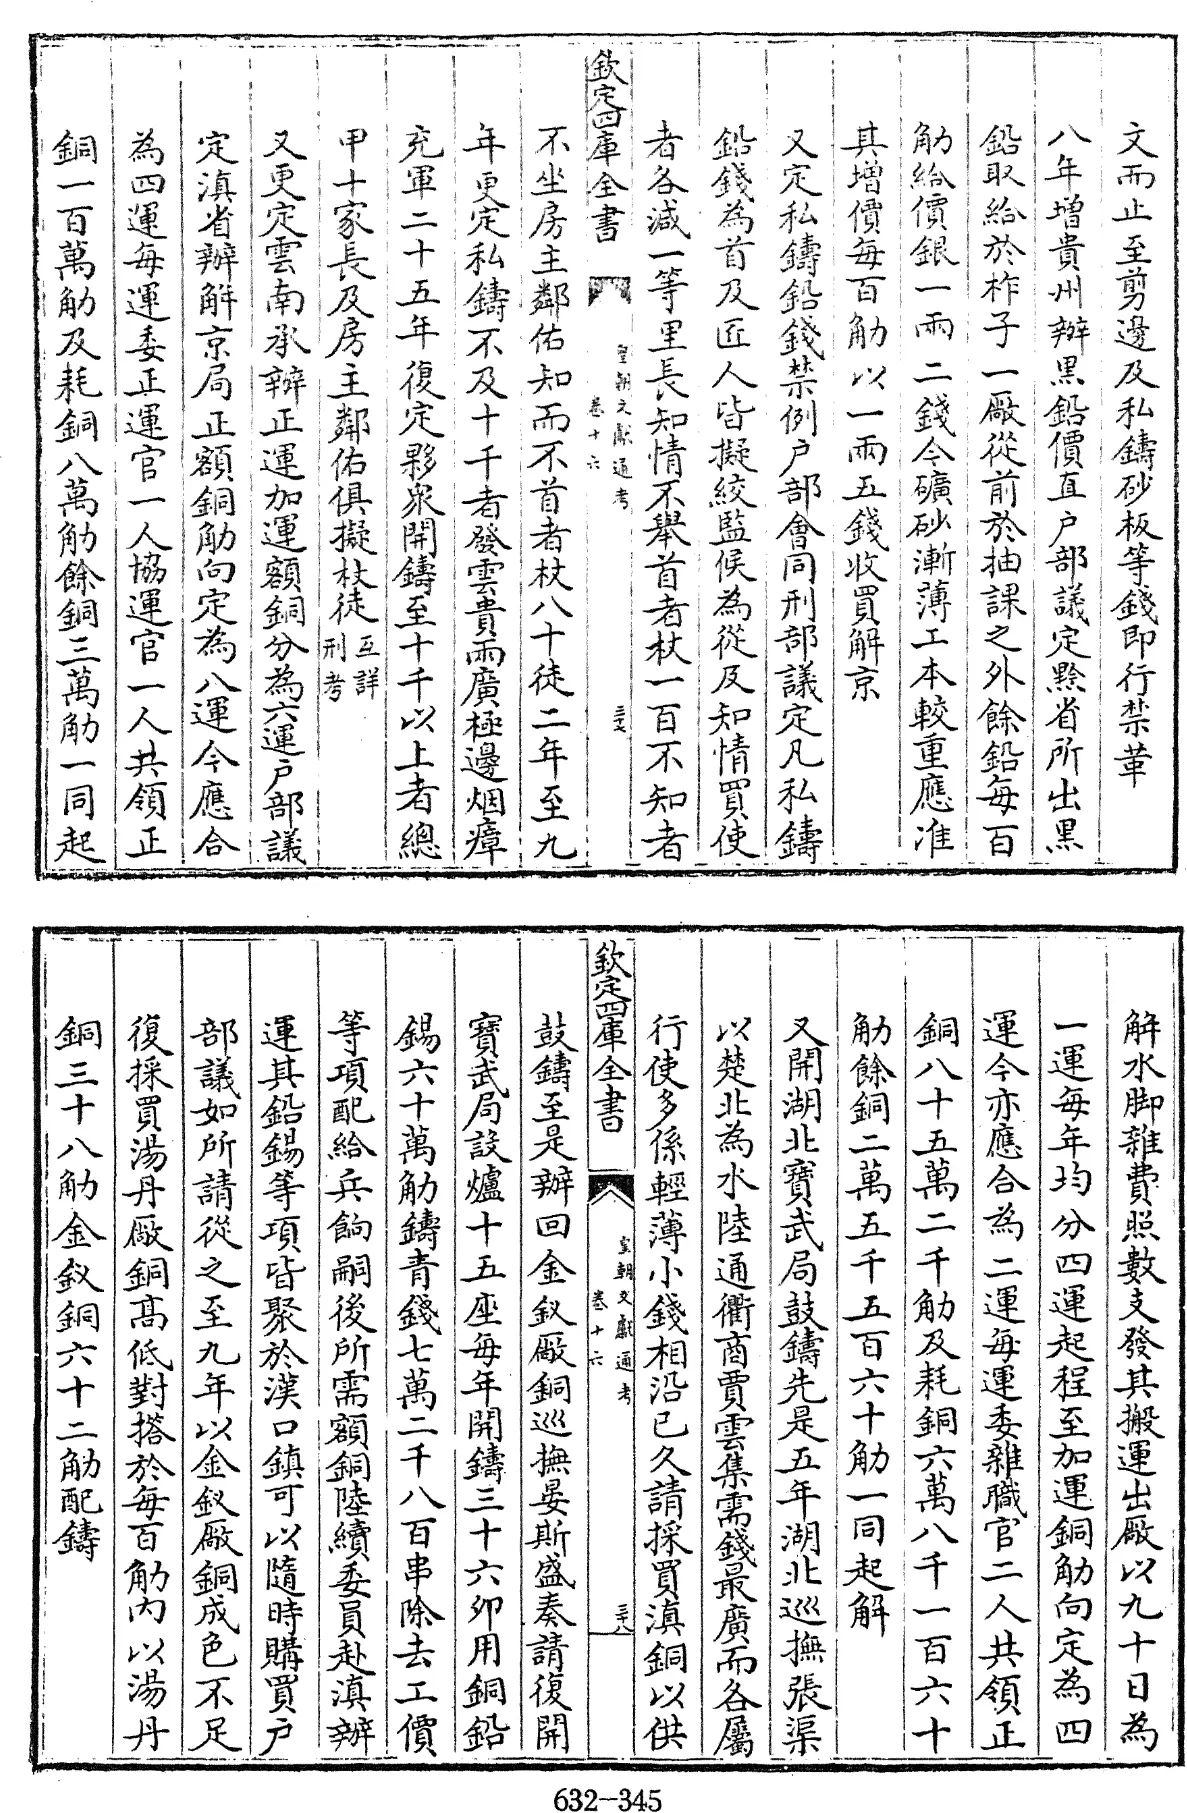 文而止至剪邊及私鑄砂板等錢即行禁革
八年增貴州辦黒鉛價直户部議定黔省所出黒
鉛取給於柞子一廠從前於抽課之外餘鉛每百
觔給價銀一兩二錢今礦砂漸薄工本較重應准
其增價每百觔以一兩五錢收買解京
又定私鑄鉛錢禁例户部㑹同刑部議定凡私鑄
鉛錢為首及匠人皆擬絞監候為從及知情買使
者各減一等里長知情不舉首者杖一百不知者
欽定四庫全書
皇朝文獻通考
卷十六
三十七
不坐房主鄰佑知而不首者杖八十徒二年至九
年更定私鑄不及十千者發雲貴兩廣極邊烟瘴
充軍二十五年復定夥衆開鑄至十千以上者總
甲十家長及房主鄰佑俱擬杖徒互詳
刑考
又更定雲南承辦正運加運額銅分為六運户部議
定滇省辦解京局正額銅觔向定為八運今應合
為四運每運委正運官一人協運官一人共領正
銅一百萬觔及耗銅八萬觔餘銅三萬觔一同起
解水脚雜費照數支發其搬運出廠以九十日為
一運每年均分四運起程至加運銅觔向定為四
運今亦應合為二運每運委雜職官二人共領正
銅八十五萬二千觔及耗銅六萬八千一百六十
觔餘銅二萬五千五百六十觔一同起解
又開湖北寳武局鼓鑄先是五年湖北巡撫張渠
以楚北為水陸通衢商賈雲集需錢最廣而各屬
行使多係輕薄小錢相沿已久請採買滇銅以供
欽定四庫全書
皇朝文獻通考
卷十六
三十八
鼓鑄至是辦回金釵廠銅巡撫晏斯盛奏請復開
寳武局設爐十五座每年開鑄三十六卯用銅鉛
錫六十萬觔鑄青錢七萬二千八百串除去工價
等項配給兵餉嗣後所需額銅陸續委員赴滇辦
運其鉛錫等項皆聚於漢口鎮可以隨時購買户
部議如所請從之至九年以金釵廠銅成色不足
復採買湯丹廠銅髙低對搭於每百觔內以湯丹
銅三十八觔金釵銅六十二觔配鑄
632-345